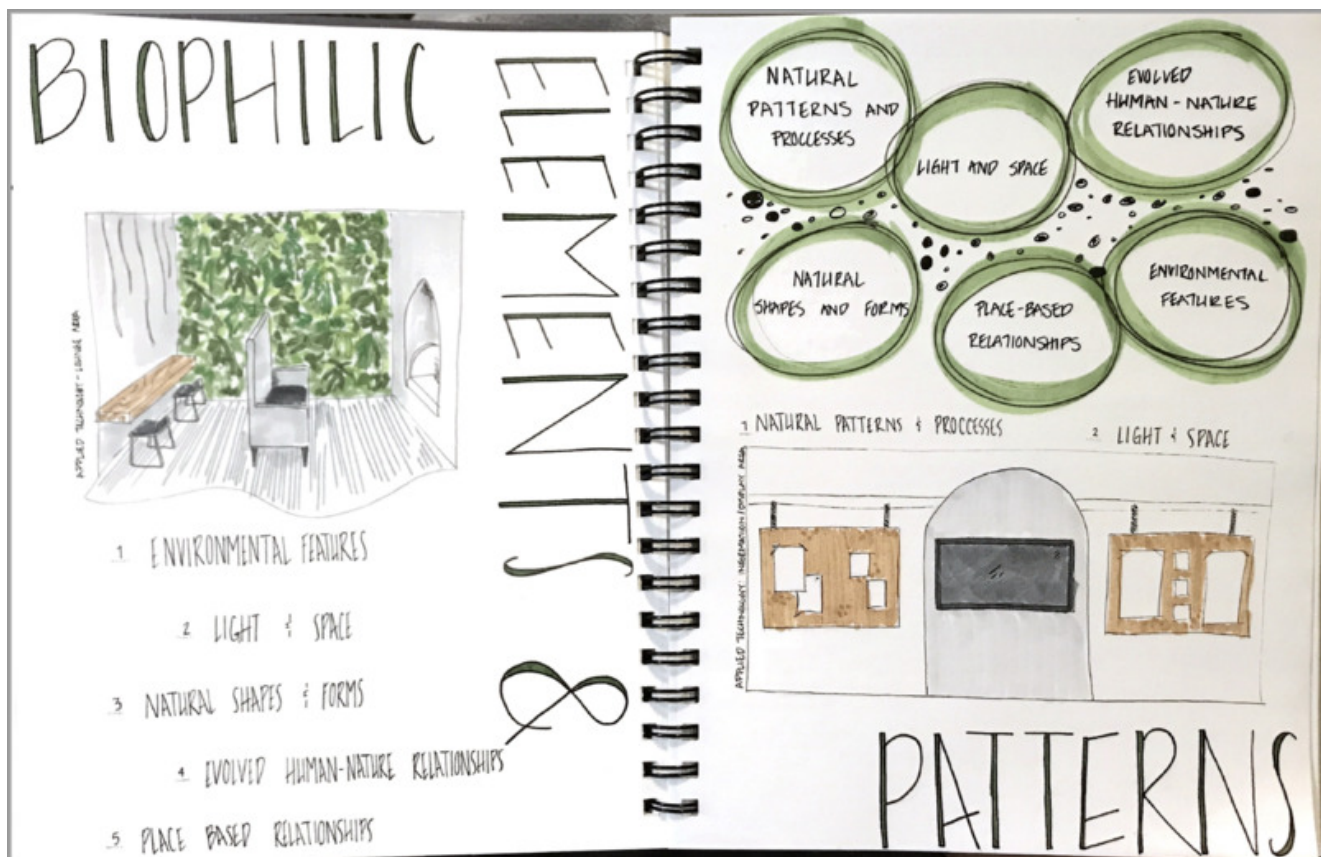 BIOPHILIC
ELEMENTS &
APPLIED TECHNOLOGY - LOUNGE AREA
1 ENVIRONMENTAL FEATURES
2 LIGHT & SPACE
3 NATURAL SHAPES & FORMS
4 EVOLVED HUMAN-NATURE RELATIONSHIPS
5 PLACE BASED RELATIONSHIPS
NATURAL
PATTERNS AND
PROCCESSES
LIGHT AND SPACE
EVOLVED
HUMAN-NATURE
RELATIONSHIPS
NATURAL
SHAPES AND FORMS
PLACE-BASED
RELATIONSHIPS
ENVIRONMENTAL
FEATURES
1 NATURAL PATTERNS & PROCCESSES
2 LIGHT & SPACE
APPLIED TECHNOLOGY: INFORMATION/DISPLAY AREA
PATTERNS